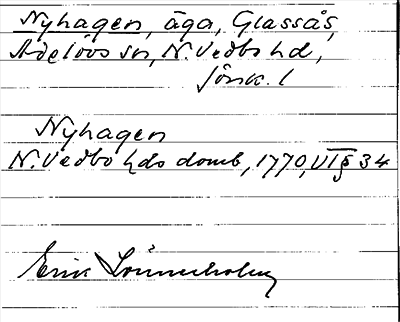 Nyhagen, äga, Glassås,
Adelövs sn, N. Vedbo hd,
Jönk. l
Nyhagen
N. Vedbo hds domb, 1770, VI § 34
Erik Lönnerholm